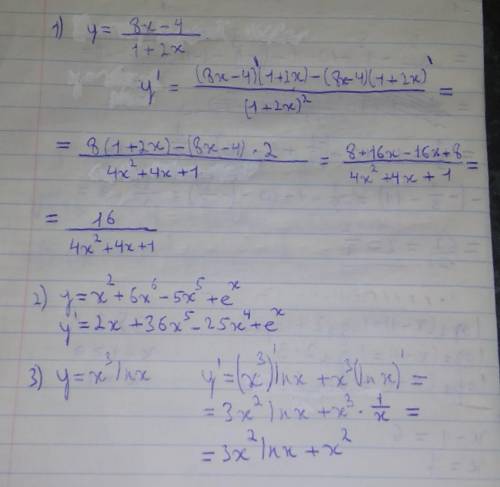 1) y = (8x-4)/(1+2x)
y' = ((8x-4)'(1+2x)-(8x-4)(1+2x)')/(1+2x)² =
= (8(1+2x)-(8x-4)·2)/(4x²+4x+1) = (8+16x-16x+8)/(4x²+4x+1) =
= 16/(4x²+4x+1)
2) y=x²+6x⁶-5x⁵+eˣ
y'=2x+36x⁵-25x⁴+eˣ
3) y=x³lnx y'=(x³)'lnx+x³(lnx)'=
=3x²lnx+x³·1/x=
=3x²lnx+x²